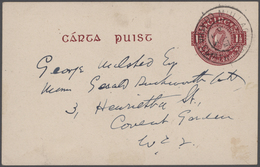 CÁRTA PUIST
George Milsted Esq
Messrs Gerald Duckworth
3, Henrietta St,
Covent Garden
W.C.2.